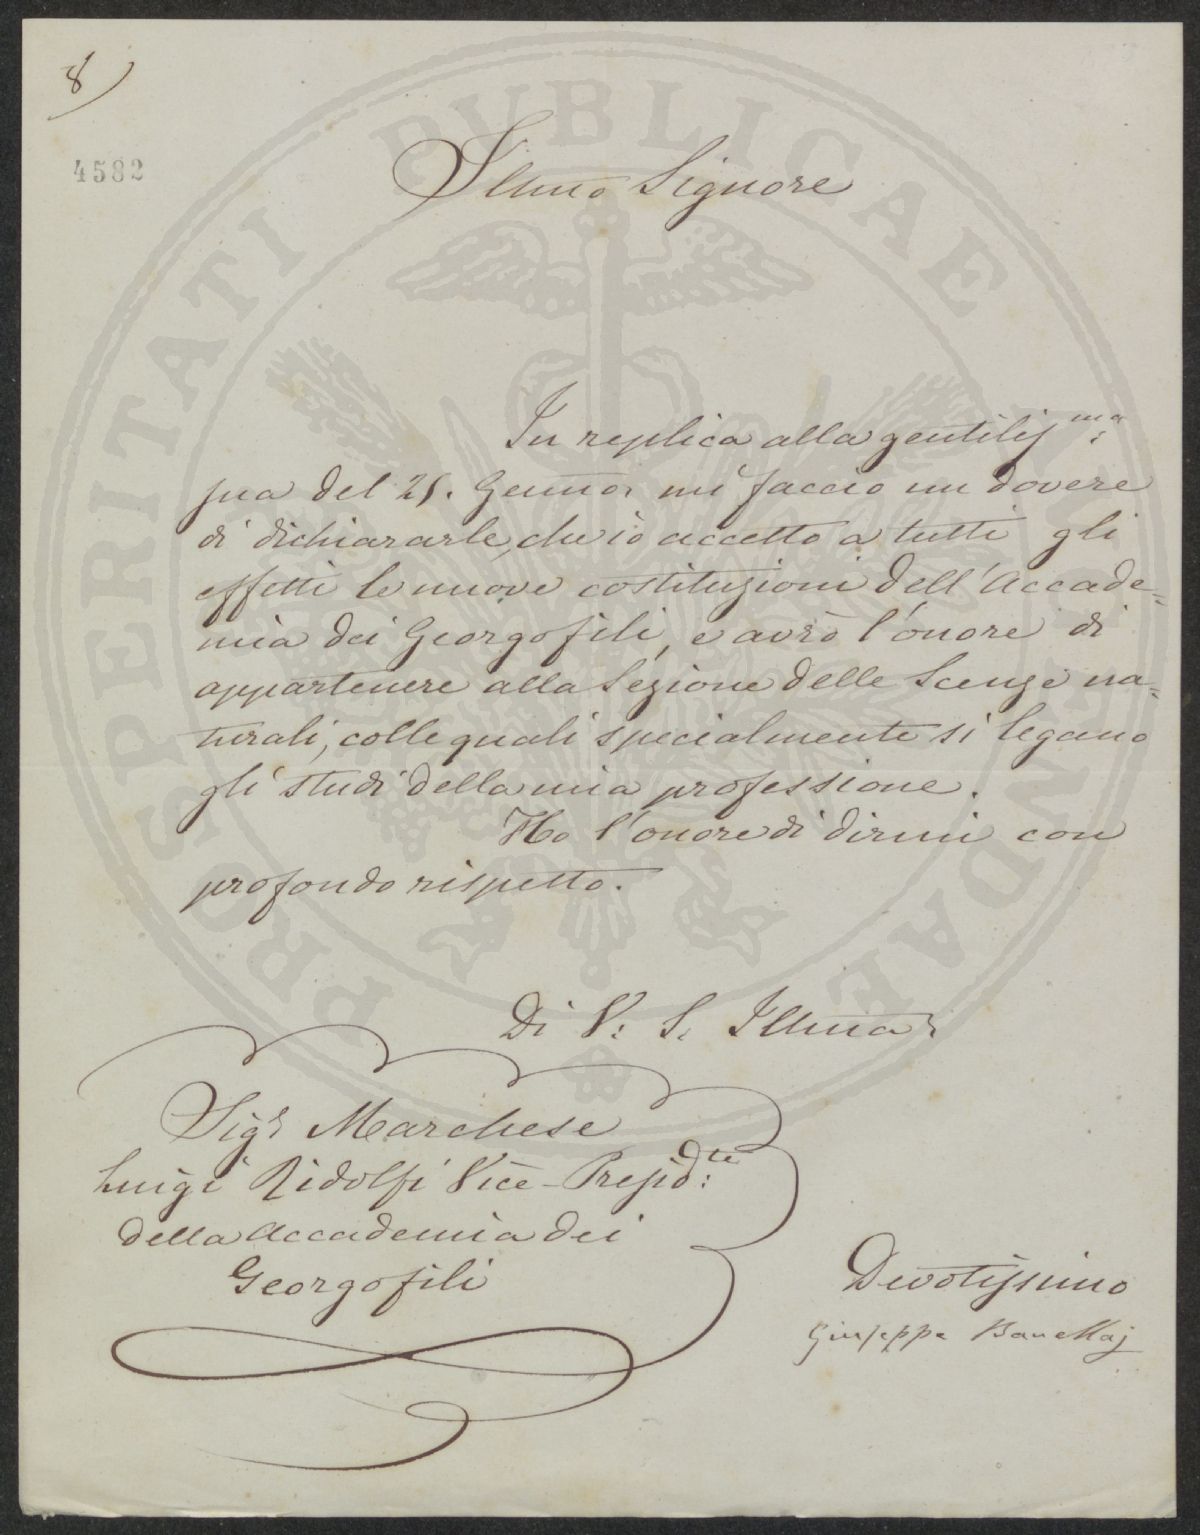 8)
4582
Illmo Signore
In replica alla gentilissma:
sua del 25. Gennio, mi faccio un dovere
di dichiararle, che io accetto a tutti gli
effetti le nuove costituzioni dell'Accade=
mia dei Georgofili, e avrò l'onore di
appartenere alla Sezione delle Scenze na=
turali, colle quali specialmente si legano
gli studi della mia professione.
Ho l'onore di dirmi con
profondo rispetto.
Di V: S. Illma
Sigr Marchese
Luigi Ridolfi Vice-Presidte:
della Accademia dei
Georgofili
Devotissimo
Giuseppe
PROSPERITATI PUBLICAE AUGENDAE